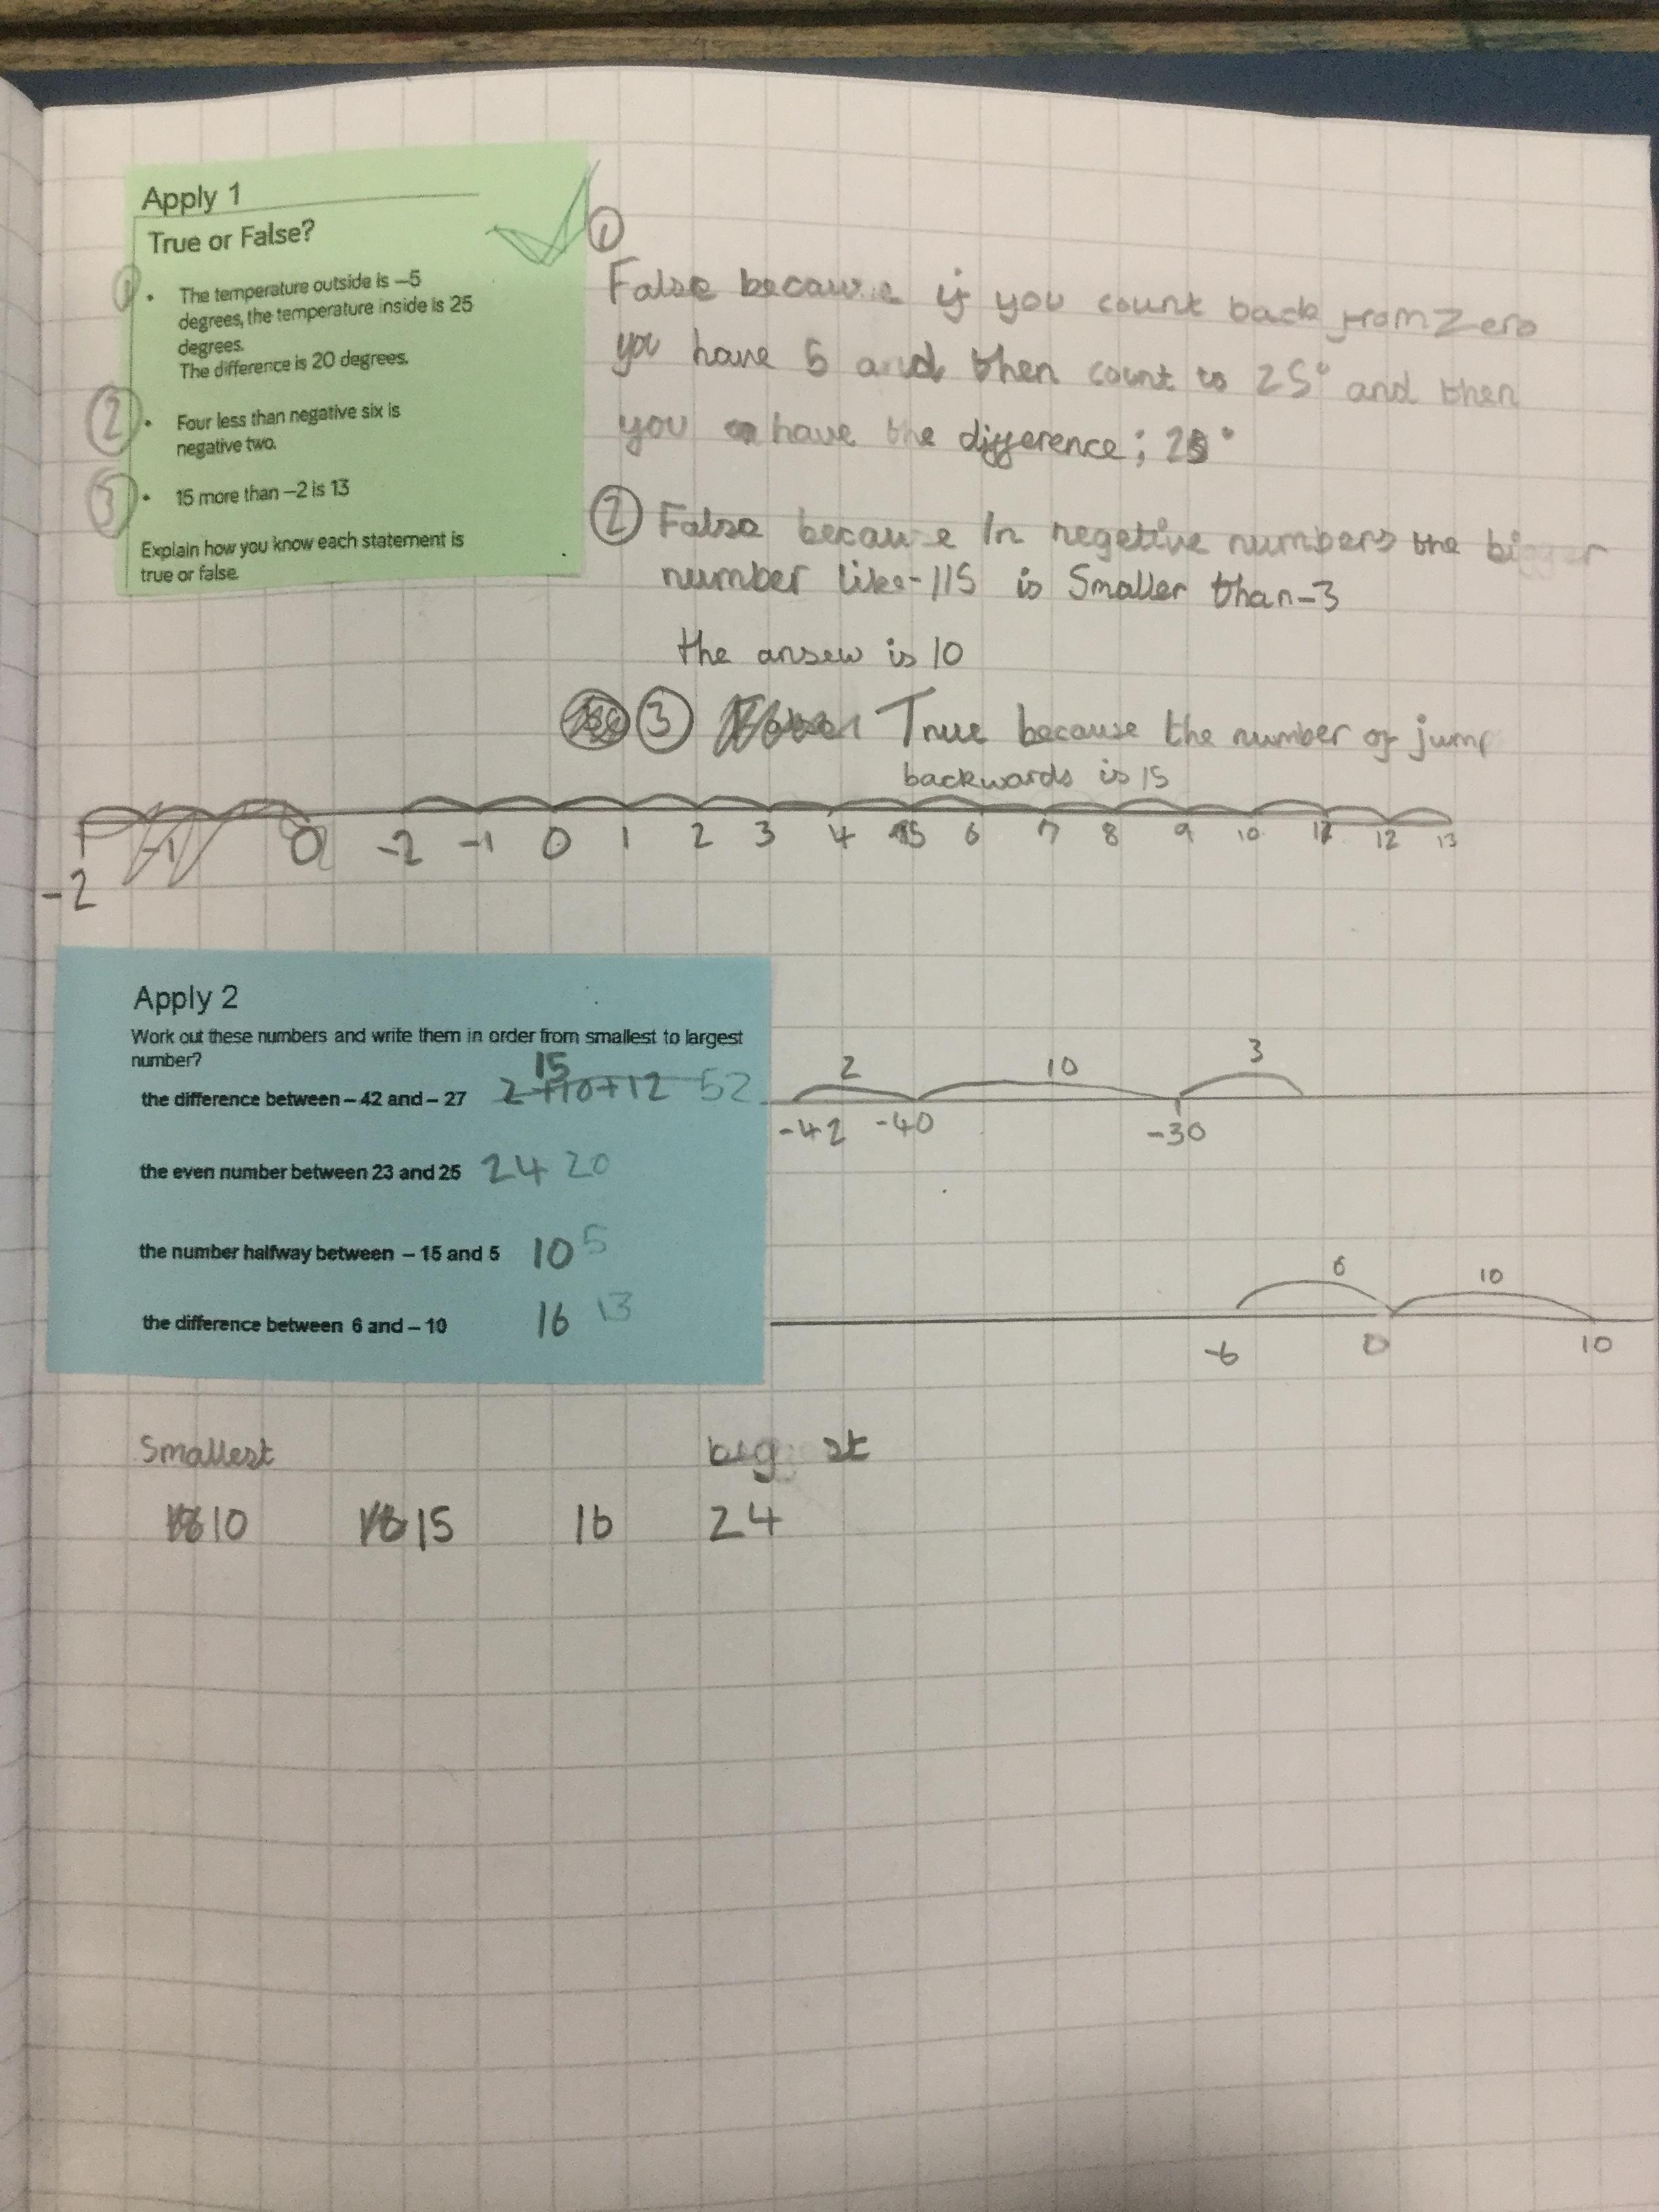 Apply 1
True or False?
① • The temperature outside is –5
degrees, the temperature inside is 25
degrees.
The difference is 20 degrees.
② • Four less than negative six is
negative two.
③ • 15 more than –2 is 13
Explain how you know each statement is
true or false.
①
False because if you count back from Zero
you have 5 and then count to 25° and then
you have the difference;
② False because In negetive numbers the bigger
number like -115 is Smaller than -3
the ansew is 10
③ True because the number of jump
backwards is 15
-2 -1 0 -2 -1 0 1 2 3 4 5 6 7 8 9 10 11 12 13
Apply 2
Work out these numbers and write them in order from smallest to largest
number?
15
the difference between – 42 and – 27 2+10+12 52
2 10 3
-42 -40 -30
the even number between 23 and 25 24 20
the number halfway between – 15 and 5 10 5
the difference between 6 and – 10 16 13
6 10
-6 0 10
Smallest big st
10 15 16 24